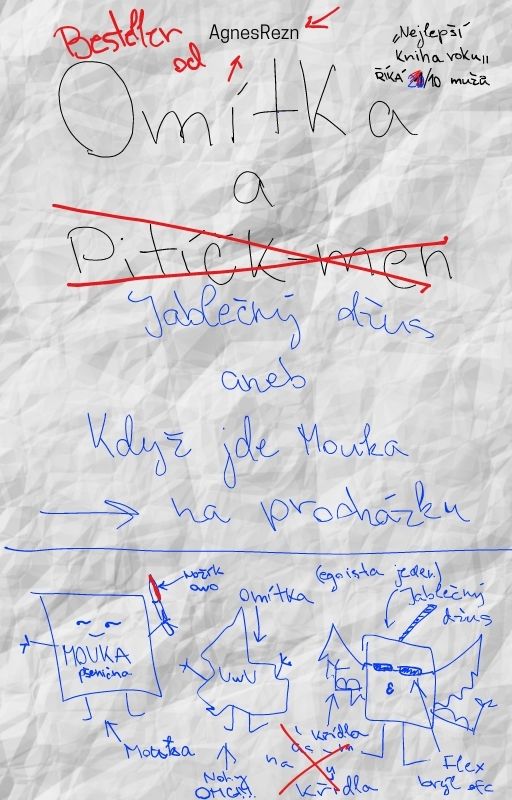 Bestseller
od
AgnesRezn
„Nejlepší
kniha roku"
ŘÍKÁ /10 mužů
Omítka
a
Pitíčk-men
Jablečný džus
aneb
Když jde Mouka
na procházku
Nožík
owo
Omítka
(egoista jeden)
Jablečný
džus
MOUKA
pšeničná
UwU
8
Mouka
Nohy
OMG!!
křídla
na
y
křídla
Flex
brýl ofc